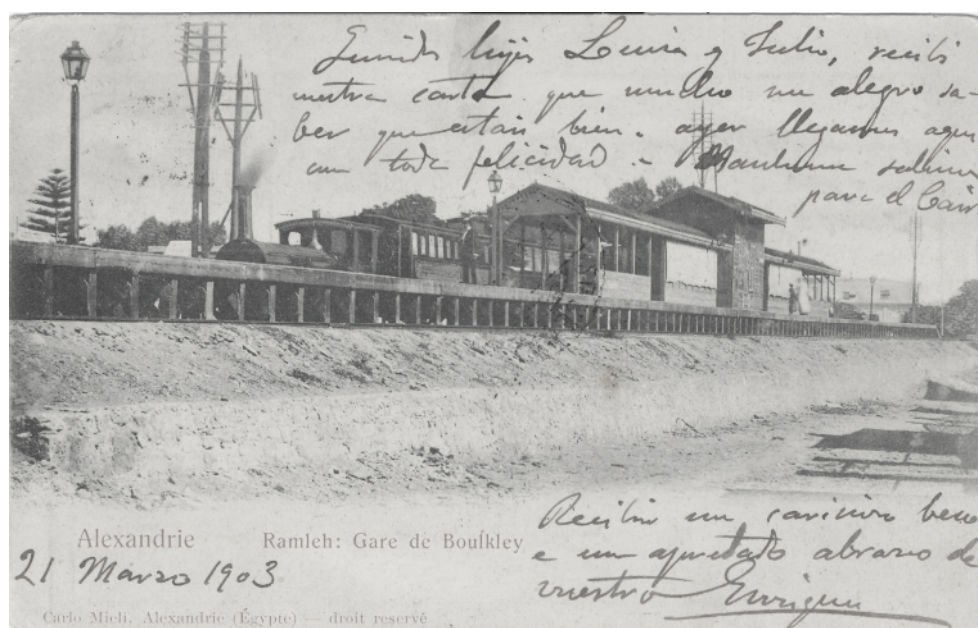 Queridos hijos Luisa y Julio, recibi
vuestra carta que mucho me alegro sa-
ber que estais bien. ayer llegamos aqui
con toda felicidad.
para el Cairo
Alexandrie Ramleh: Gare de Boulkley
21 Marzo 1903
Recibir un cariñoso beso
e un apretado abrazo de
vuestro Enrique
Carlo Mieli, Alexandrie (Égypte) — droit reservé